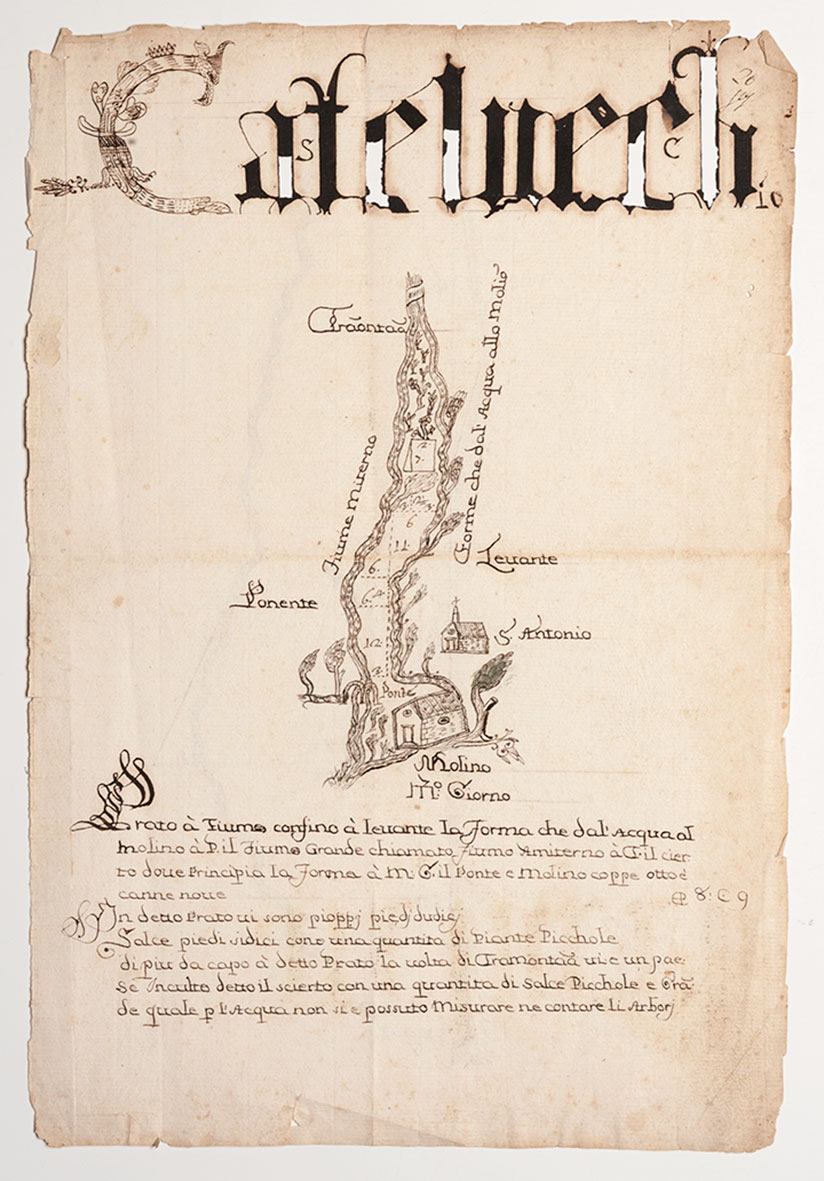 Castelvecchio
S C
20
10
Tramõtãa
Fiume Miterno
Forme che dal' Acqua allo Molio
2
7.
6
11
6.
6.
12
2.
Levante
Ponente
S. Antonio
Ponte
Molino
M.º Giorno
Prato à Fiume confino à Levante la Forma che dal' Acqua al
Molino à P. il Fiume Grande chiamato Fiume Amiterno à T. il cier-
to doue Principia la Forma à M. G. il Ponte e Molino coppe otto è
canne noue
C 8: C 9
In detto Prato ui sono pioppj piedj dudicj
Salce piedi sidici cono una quantita di Piante Picchole
di piu da capo à detto Prato la uolta di Tramontãa ui e un pae-
se Inculto detto il scierto con una quantita di Salce Picchole e Grã-
de quale p l'Acqua non si e possuto Misurare ne contare li Arborj